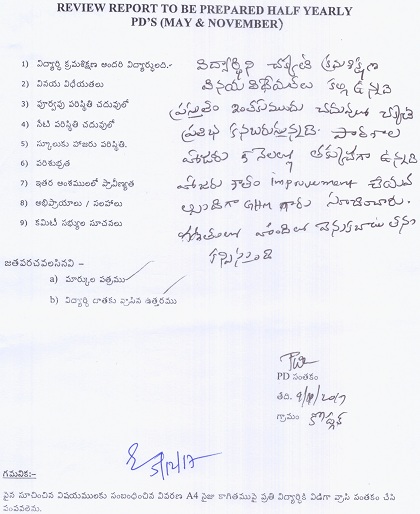 REVIEW REPORT TO BE PREPARED HALF YEARLY
PD'S (MAY & NOVEMBER)
1) విద్యార్థి క్రమశిక్షణ అందరి విద్యార్థులది.-
2) వినయ విధేయతలు
3) పూర్వపు పరిస్థితి చదువులో
4) నేటి పరిస్థితి చదువులో
5) స్కూలుకు హాజరు పరిస్థితి.
6) పరిశుభ్రత
7) ఇతర అంశములలో ప్రావీణ్యత
8) అభిప్రాయాలు / సలహాలు
9) కమిటీ సభ్యుల సూచనలు
విద్యార్థిని చక్కటి క్రమశిక్షణ
వినయ విధేయతలు కల్గి ఉన్నది
ప్రస్తుతం ఇంతకుముందు చదువులో చక్కటి
ప్రతిభ కనబరుస్తున్నది.
హాజరు తక్కువగా ఉన్నది
హాజరు శాతం improvement చేయవ
GHM గారు సూచించారు.
వెనుకబాటుతనం
కన్పిస్తుంది
జతపరచవలసినవి -
a) మార్కుల పత్రము
b) విద్యార్థి దాతకు వ్రాసిన ఉత్తరము
PD సంతకం
తేది.
గ్రామం
5/12/17
గమనిక:-
పైన సూచించిన విషయములకు సంబంధించిన వివరణ A4 సైజు కాగితముపై ప్రతి విద్యార్థికి విడిగా వ్రాసి సంతకం చేసి
పంపవలెను.